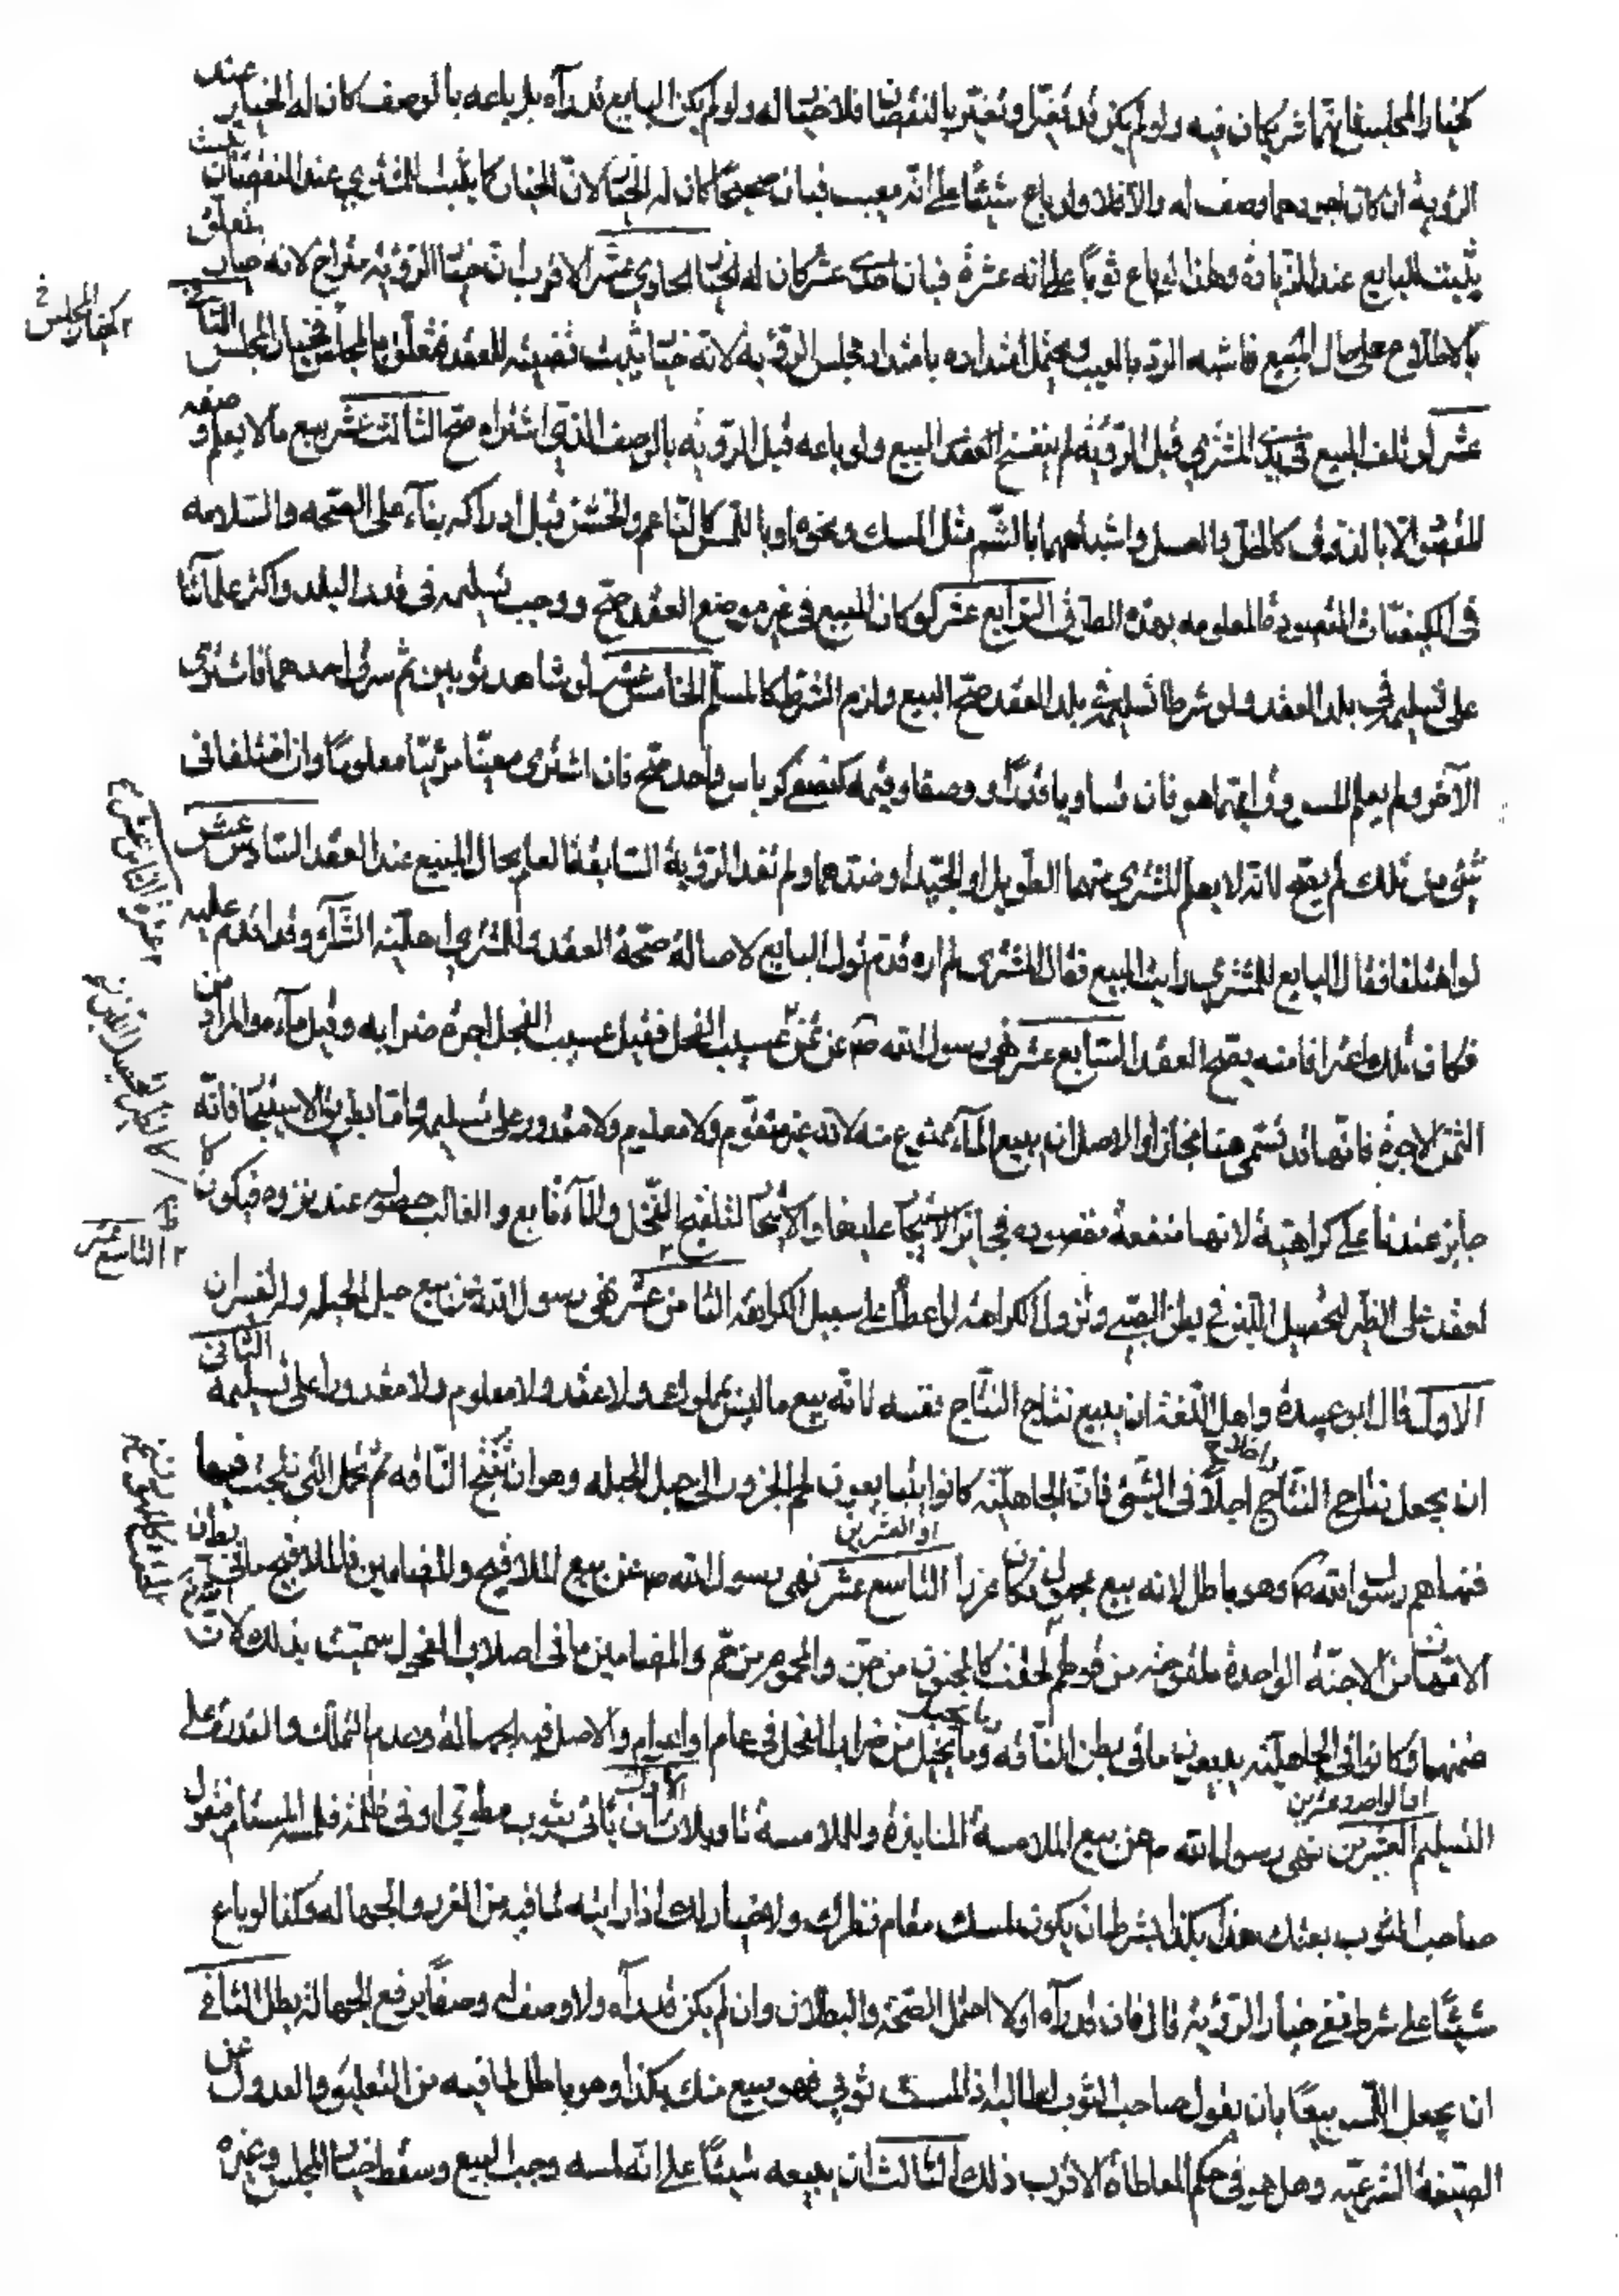 كخيار المجلس فانهما شريكان فيه ولو لم يكن قد تغيّر او تغيّر بالنقصان فلا خيار له ولو لم يكن البايع قد رآه بل باعه بالوصف كان له الخيار عند
الرؤية ان كان اجود مما وصف له والا فلا ولو باع شيئًا على انّه معيب فبان صحيحًا كان له الخيار لانّ الخيار كما يثبت للمشتري عند النقصان يثبت
يثبت للبايع عند الزيادة ولهذا لو باع ثوبًا على انه عشرة فبان احدى عشر كان له الخيار الحادي عشر الاقرب ان خيار الرؤية متراخ لانه خيار يتعلّق
بالاطلاع على حال المبيع فاشبه الردّ بالعيب ويحتمل امتداده بامتداد مجلس الرؤية لانه خيار يثبت قضيته للعقد فتعلّق بالمجلس كخيار المجلس الثاني
عشر لو تلف المبيع في يد المشتري قبل الرؤية لم ينفسخ العقد المبيع ولو باعه قبل الرؤية بالوصف الذي اشتراه صحّ الثالث عشر بيع ما لا يعلم وصفه
المقصود الا بالذوق كالخلّ والعسل واشباههما بالشّم مثل المسك ونحوه او باللمس كالنّاعم والخشن قبل ادراكه بناءً على الصّحه والسّلامه
في الكيفيّات المقصودة المعلومه بهذه الطرق الرّابع عشر لو كان المبيع في غير موضع العقد صحّ ووجب تسليمه في ذلك البلد واكثر علمائنا
على تسليمه في بلد العقد ولو شرطا تسليمه في بلد العقد صحّ البيع ولزم الشرط كالمسلم الخامس عشر لو شاهد ثوبين ثم سرق احدهما فاشترى
الآخر ولم يعلم المسروق ايّهما هو فان تساويا قدرًا ووصفا وقيمه كنصفي كرباس واحد صحّ فان اشترى معيّنًا مرئيًّا معلومًا وان اختلفا في
شيء من ذلك لم يصحّ لانّه لا يعلم المشتري منهما الطّويل او الجيّد او ضدّهما ولم تفد الرؤية السّابقة العلم بحال المبيع عند العقد السّادس عشر
لو اختلفا فقال البايع للمشتري رايت المبيع فقال المشتري لم اره قدّم قول البايع لاصالة صحّة العقد وللمشتري اهليّة الشّراء وقد اقدم عليه
فكان ذلك اعترافا منه بصحّة العقد السّابع عشر نهى رسول الله ص عن ثمن عسيب الفحل فقيل عسيب الفحل اجرة ضرابه وقيل ماءه والمراد من
الثّمن الاجرة فانّها قد تسمّى ثمنا مجازا والاصل ان بيع الماء ممنوع منه لانه غير متقوّم ولا معلوم ولا مقدور على تسليمه وامّا بطريق الاستيجار فانّه
جايز عندنا على كراهيّة لانها منفعة مقصوده فجاز الاستيجار عليها والاستيجار لتلقيح النّخل والماء تابع والغالب حصوله عند نزوه فيكون كا
لعقد على الظئر لتحصيل اللّبن في بطن الصّبي وتزول الكراهة لو اعطاه على سبيل الكرامه الثامن عشر نهى رسول الله عن بيع حبل الحبله وله تفسيران
الاوّل قال ابو عبيدة واهل اللّغة ان يبيع نتاج النّتاج نفسه لانّه بيع ما ليس بمملوك ولا عقد ولا معلوم ولا مقدورا على تسليمه الثاني
ان يجعل نتاج النّتاج اجلًا في الشّيء فانّ الجاهليّة كانوا يتبايعون لحم الجزور الى حبل الحبله وهو ان تنتج النّاقه ثم تحمل التي نتجت فيها
فنهاهم رسول الله ص وهو باطل لانه بيع مجهول فكان غررا التاسع عشر نهى رسول الله ص عن بيع الملاقيح والمضامين فالملاقيح ما في بطون
الامّهات من الاجنّة الواحدة ملقوحة من قولهم لحقت كالمجنون من جنّ والمحموم من حمّ والمضامين ما في اصلاب الفحول سمّيت بذلك لانّ
ضمنها وكانوا في الجاهليّة يبيعون ما في بطن النّاقه وما يحبل من ضراب الفحل في عام او اعوام والاصل فيه الجهالة وعدم التملّك والقدرة على
التسليم العشرون نهى رسول الله ص عن بيع الملامسة المنابذة وللملامسة تاويلات الاول ان ياتي بثوب مطوي او في ظلمة فيلمسه المستام فيقول
صاحب الثوب بعتك هذا بكذا بشرط ان يكون لمسك مقام نظرك ولا خيار لك اذا رايته لما فيه من الغرر والجهاله وكذا لو باع
شيئًا على شرط نفي خيار الرؤية قال فان قد رآه اوّلا احتمل الصّحة والبطلان وان لم يكن قد رآه ولا وصف له وصفًا يرفع الجهالة بطل الثاني
ان يجعل اللمس بيعًا بان يقول صاحب الثوب لطالبه اذا لمست ثوبي فهو مبيع منك بكذا وهو باطل لما فيه من التعليق والعدول عن
الصّيغة الشرعيّه وهل هو في حكم المعاطاة الاقرب ذلك الثالث ان يبيعه شيئًا على انّه لمسه وجب البيع وسقط خيار المجلس وغيره
كخيار المجلس
التاسع عشر
او العشرين
او الواحد وعشرين